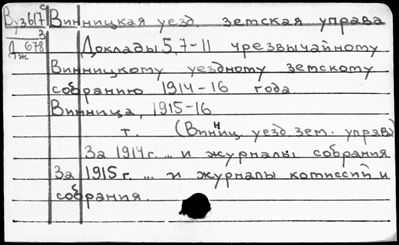 Вуз617с Винницкая уезд. земская управа
3
Дж 678 Доклады 5,7-11 чрезвычайному
Винницкому уездному земскому
собранию 1914-16 года
Винница, 1915-16
т. (Винниц. уезд. зем. управа)
За 1914г. ... и журналы собрания
За 1915г. ... и журналы комиссий и
собрания.